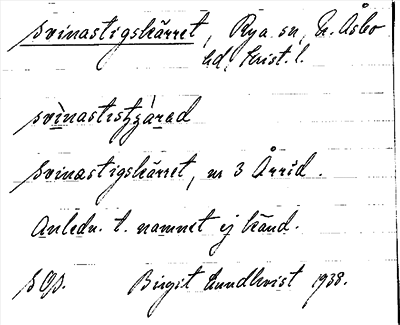 Svinastigskärret, Rya sn, N. Åsbo
hd, Krist. l.
svìnastistȷ̌árad
Svinastigskärret, nr 3 Årrid.
Anledn. t. namnet ej känd.
SOJ. Birgit Lundkvist 1938.